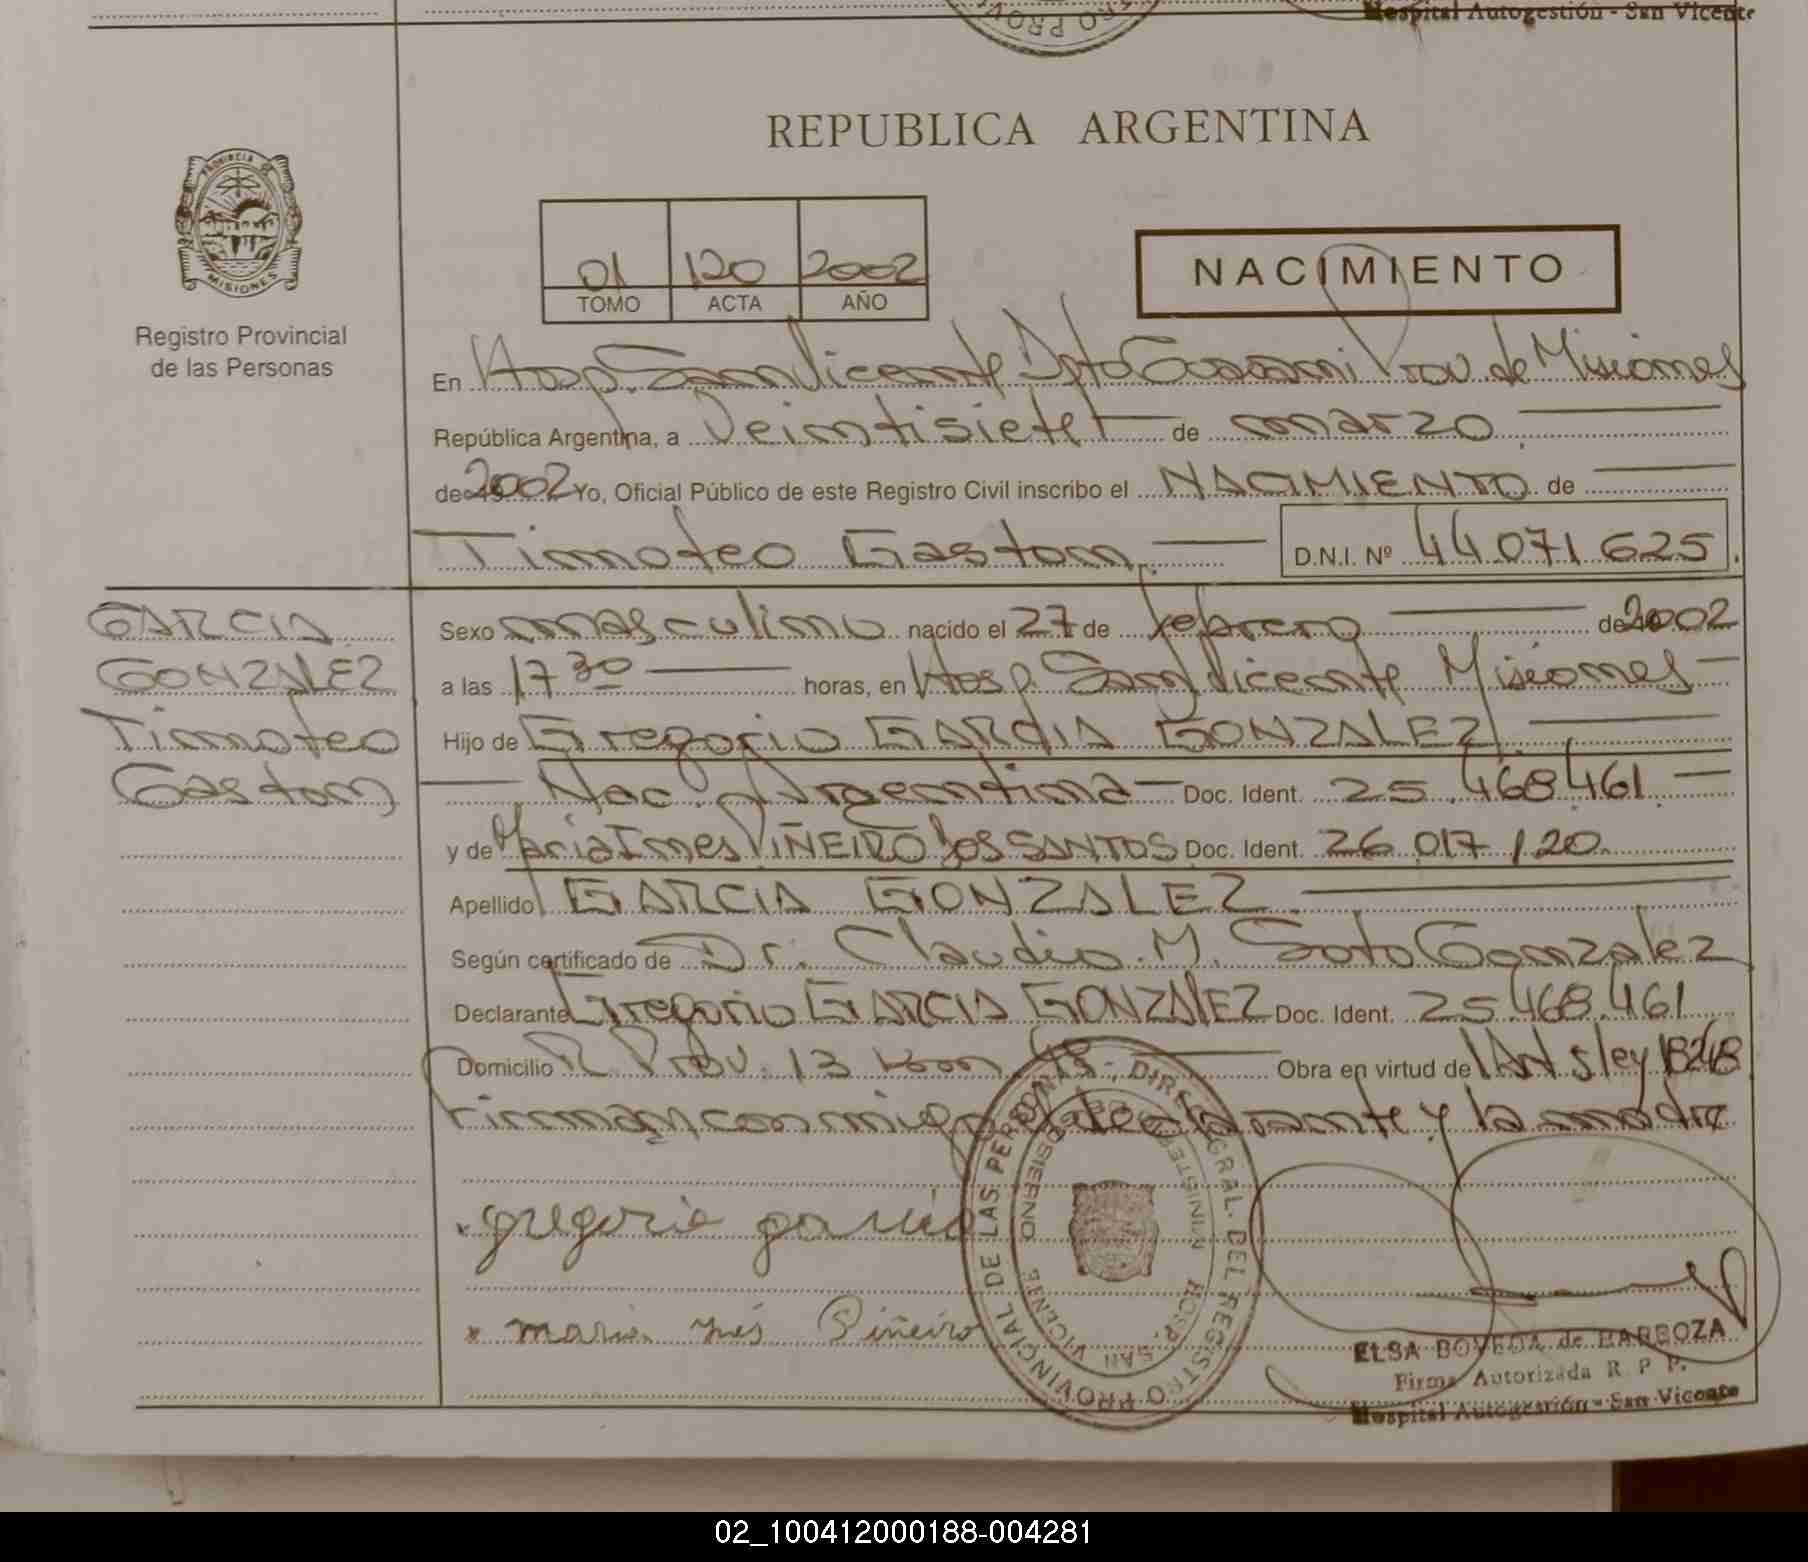 Hospital Autogestión - San Vicente
REPUBLICA ARGENTINA
PROVINCIA DE
MISIONES
Registro Provincial
de las Personas
01 120 2002
TOMO ACTA AÑO
NACIMIENTO
En Hosp. San Vicente Dpto Guarani Prov. de Misiones
República Argentina, a Veintisiete de marzo
de 2002 Yo, Oficial Público de este Registro Civil inscribo el NACIMIENTO de
Timoteo Gaston D.N.I. Nº 44.071.625
GARCIA
GONZALEZ
Timoteo
Gaston
Sexo masculino nacido el 27 de febrero de 2002
a las 17 30 horas, en Hosp. San Vicente Misiones
Hijo de Gregorio GARCIA GONZALEZ
Nac. Argentina Doc. Ident. 25.468.461
y de Maria Ines PIÑEIRO dos SANTOS Doc. Ident. 26.017.120
Apellido GARCIA GONZALEZ
Según certificado de Dr. Claudio M. Soto Gonzalez
Declarante Gregorio GARCIA GONZALEZ Doc. Ident. 25.468.461
Domicilio R. Prov. 13 km 48 Obra en virtud de ley 18248
Firman conmigo el declarante y la madre
gregorio garcia
maria ynés Piñeiro
DIR. GRAL. DEL REGISTRO PROVINCIAL DE LAS PERSONAS
HOSP. SAN VICENTE
ELSA BOVEDA de BARBOZA
Firma Autorizada R. P. P.
Hospital Autogestión - San Vicente
02_100412000188-004281